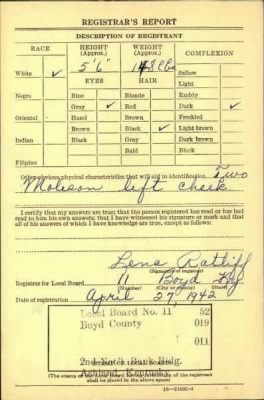 REGISTRAR'S REPORT
DESCRIPTION OF REGISTRANT
RACE HEIGHT (Approx.) WEIGHT (Approx.) COMPLEXION
5' 6" 148 lbs
White ✓ EYES HAIR Sallow
Light
Negro Blue Blonde Ruddy
Gray ✓ Red Dark ✓
Oriental Hazel Brown Freckled
Brown Black ✓ Light brown
Indian Black Gray Dark brown
Bald Black
Filipino
Other obvious physical characteristics that will aid in identification Two
Moles on left cheek
I certify that my answers are true; that the person registered has read or has had
read to him his own answers; that I have witnessed his signature or mark and that
all of his answers of which I have knowledge are true, except as follows:
Lena Ratliff
(Signature of registrar)
Registrar for Local Board 11 Boyd Ky.
(Number) (City or county) (State)
Date of registration April 27, 1942
Local Board No. 11 52
Boyd County 019
011
2nd Nat'l Bank Bldg.
Ashland, Kentucky
(The stamp of the Local Board having jurisdiction of the registrant
shall be placed in the above space)